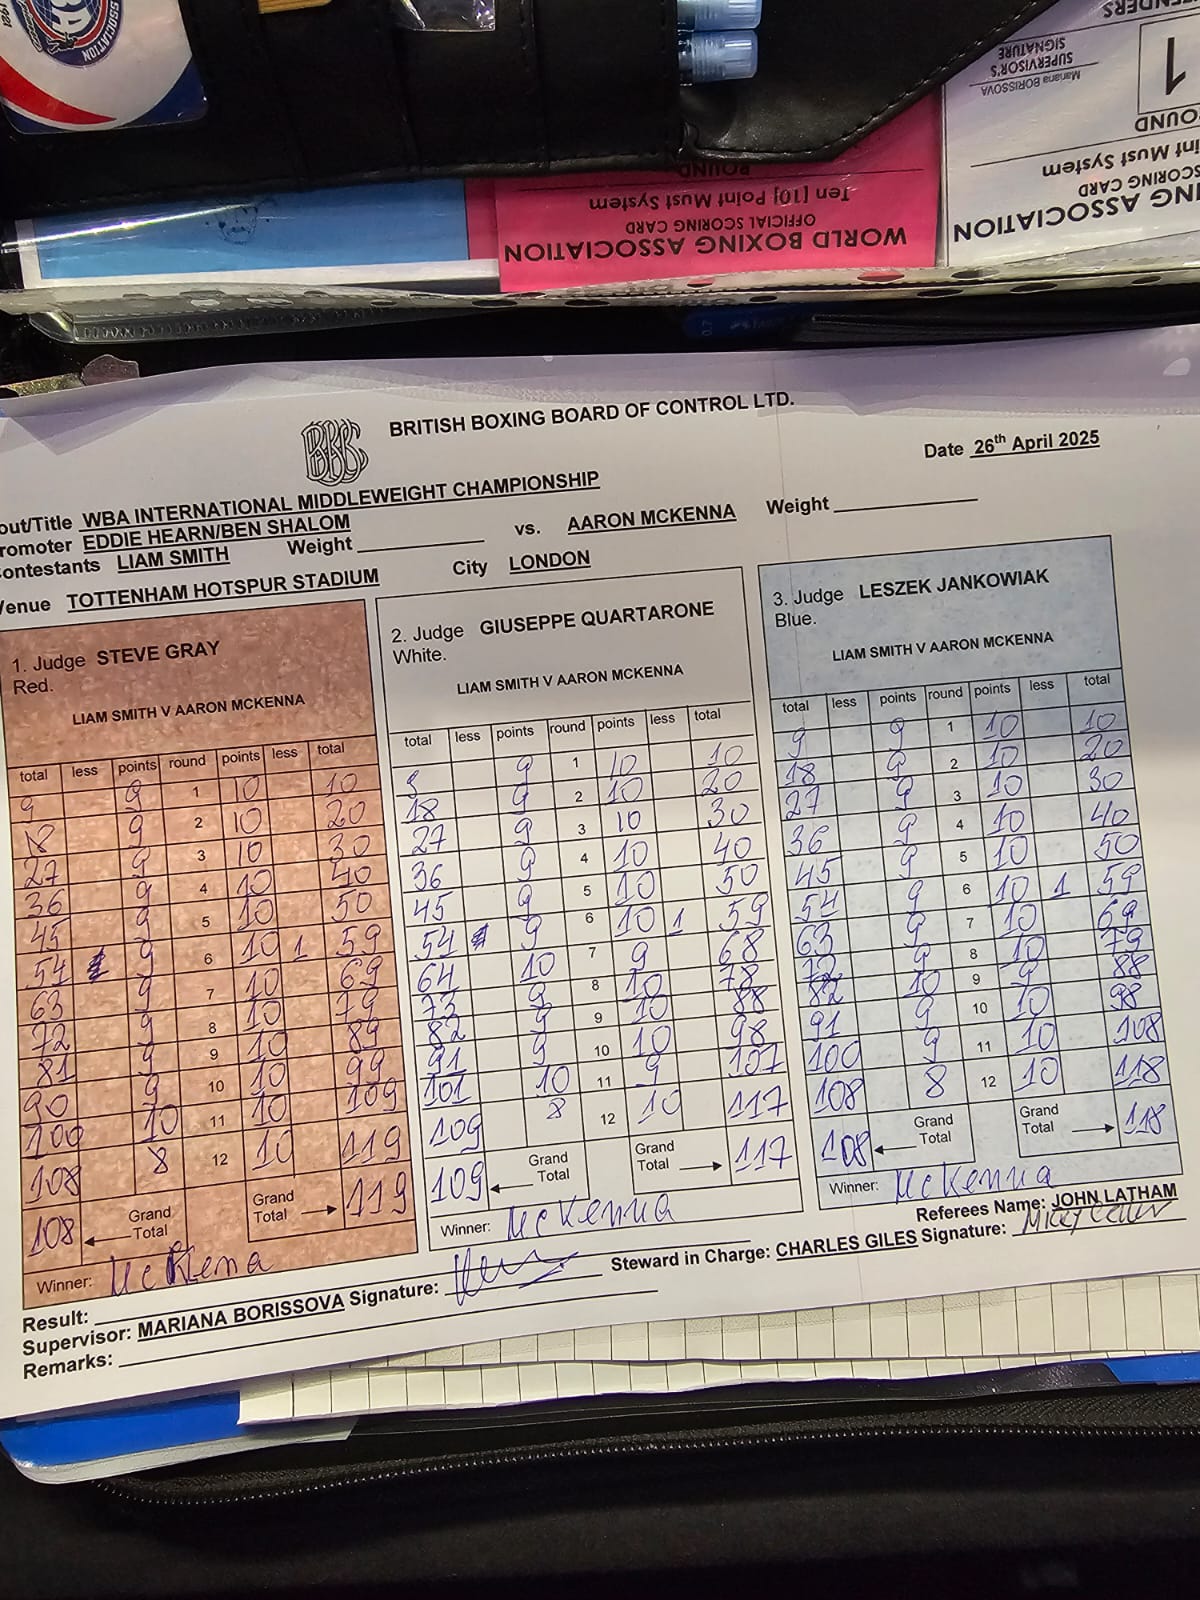 ASSOCIATION
1921
TENDERS
SUPERVISOR'S
SIGNATURE
Mariana BORISSOVA
1
OUND
int Must System
SCORING CARD
NG ASSOCIATION
ROUND
Ten [10] Point Must System
OFFICIAL SCORING CARD
WORLD BOXING ASSOCIATION
0.7
BRITISH BOXING BOARD OF CONTROL LTD.
Date 26th April 2025
out/Title WBA INTERNATIONAL MIDDLEWEIGHT CHAMPIONSHIP
romoter EDDIE HEARN/BEN SHALOM
ontestants LIAM SMITH Weight vs. AARON MCKENNA Weight
Venue TOTTENHAM HOTSPUR STADIUM City LONDON
1. Judge STEVE GRAY
Red.
LIAM SMITH V AARON MCKENNA
total less points round points less total
9 9 1 10 10
18 9 2 10 20
27 9 3 10 30
36 9 4 10 40
45 9 5 10 50
54 9 6 10 1 59
63 9 7 10 69
72 9 8 10 79
81 9 9 10 89
90 9 10 10 99
100 10 11 10 109
108 8 12 10 119
108 Grand Total Grand Total 119
Winner: McKena
2. Judge GIUSEPPE QUARTARONE
White.
LIAM SMITH V AARON MCKENNA
total less points round points less total
9 9 1 10 10
18 9 2 10 20
27 9 3 10 30
36 9 4 10 40
45 9 5 10 50
54 9 6 10 1 59
64 10 7 9 68
73 9 8 10 78
82 9 9 10 88
91 9 10 10 98
101 10 11 9 107
109 8 12 10 117
109 Grand Total Grand Total 117
Winner: McKenna
3. Judge LESZEK JANKOWIAK
Blue.
LIAM SMITH V AARON MCKENNA
total less points round points less total
9 9 1 10 10
18 9 2 10 20
27 9 3 10 30
36 9 4 10 40
45 9 5 10 50
54 9 6 10 1 59
63 9 7 10 69
72 9 8 10 79
82 10 9 9 88
91 9 10 10 98
100 9 11 10 108
108 8 12 10 118
108 Grand Total Grand Total 118
Winner: McKenna
Referees Name: JOHN LATHAM
Result:
Supervisor: MARIANA BORISSOVA Signature: Steward in Charge: CHARLES GILES Signature:
Remarks: